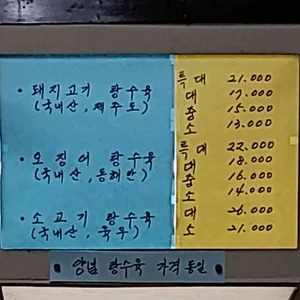 · 돼지고기 탕수육
(국내산, 제주도)
· 오징어 탕수육
(국내산, 동해안)
· 소고기 탕수육
(국내산, 육우)
특대 21.000
대 17.000
중 15.000
소 13.000
특대 22.000
대 18.000
중 16.000
소 14.000
대 26.000
소 21.000
양념 탕수육 가격 동일